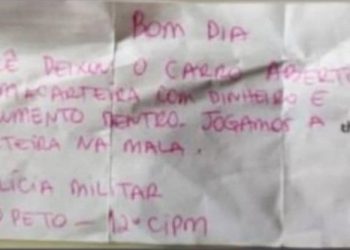 BOM DIA
CÊ DEIXOU O CARRO ABERTO
MA CARTEIRA COM DINHEIRO E
UMENTO DENTRO. JOGAMOS A
TEIRA NA MALA.
LÍCIA MILITAR
PETO — 12ª CIPM